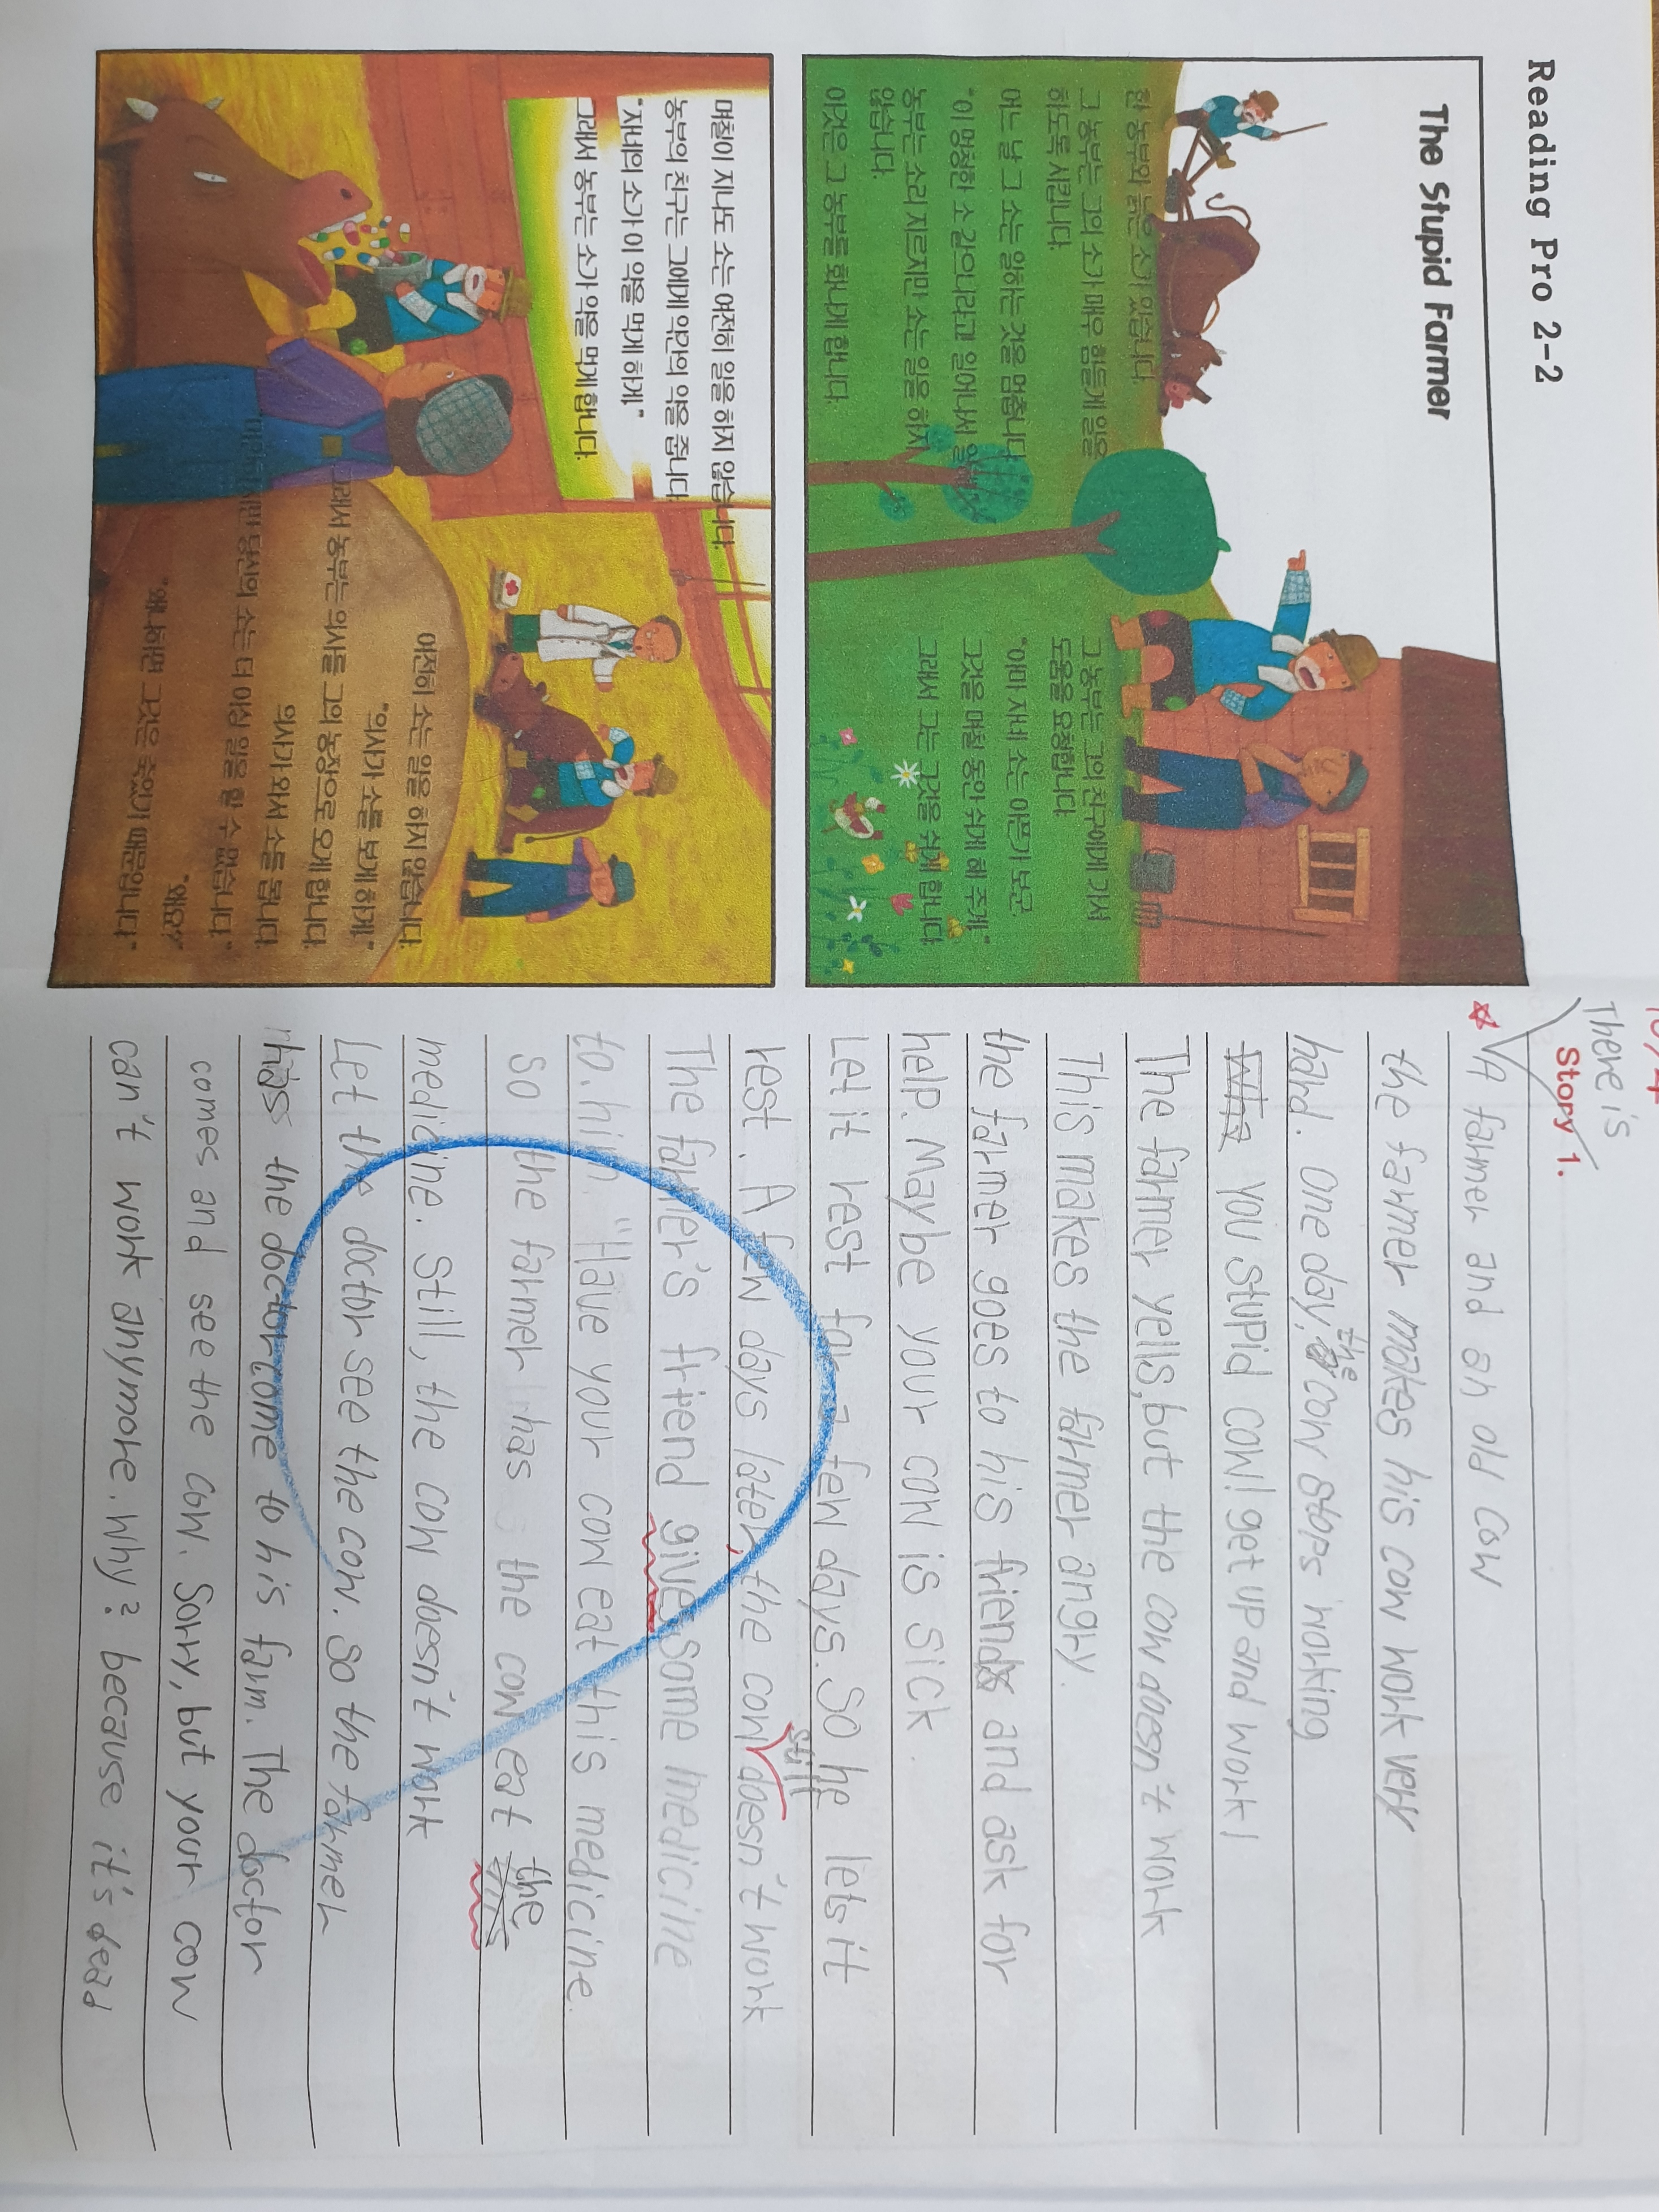 Reading Pro 2-2
The Stupid Farmer
한 농부와 늙은 소가 있습니다.
그 농부는 그의 소가 매우 힘들게 일을
하도록 시킵니다.
어느 날 그 소는 일하는 것을 멈춥니다.
"이 멍청한 소 같으니라고 일어나서 일해!"
농부는 소리 지르지만 소는 일을 하지
않습니다.
이것은 그 농부를 화나게 합니다.
그 농부는 그의 친구에게 가서
도움을 요청합니다.
"아마 자네 소는 아픈가 보군.
그것을 며칠 동안 쉬게 해 주게."
그래서 그는 그것을 쉬게 합니다.
며칠이 지나도 소는 여전히 일을 하지 않습니다.
농부의 친구는 그에게 약간의 약을 줍니다.
"자네의 소가 이 약을 먹게 하게."
그래서 농부는 소가 약을 먹게 합니다.
여전히 소는 일을 하지 않습니다.
"의사가 소를 보게 하게."
그래서 농부는 의사를 그의 농장으로 오게 합니다.
의사가 와서 소를 봅니다.
당신의 소는 더 이상 일을 할 수 없습니다."
"왜요?"
"왜냐하면 그것은 죽었기 때문입니다."
There is
Story 1.
A farmer and an old cow
the farmer makes his cow work very
hard. One day, the cow stops working
you stupid cow! get up and work!
The farmer yells, but the cow doesn't work
This makes the farmer angry.
the farmer goes to his friend and ask for
help. Maybe your cow is sick.
Let it rest for a few days. So he lets it
rest. A few days later, the cow still doesn't work
The farmer's friend gives some medicine
to him. "Have your cow eat this medicine.
So the farmer has the cow eat the
medicine. Still, the cow doesn't work
Let the doctor see the cow. So the farmer
has the doctor come to his farm. The doctor
comes and see the cow. Sorry, but your cow
can't work anymore. Why? because it's dead